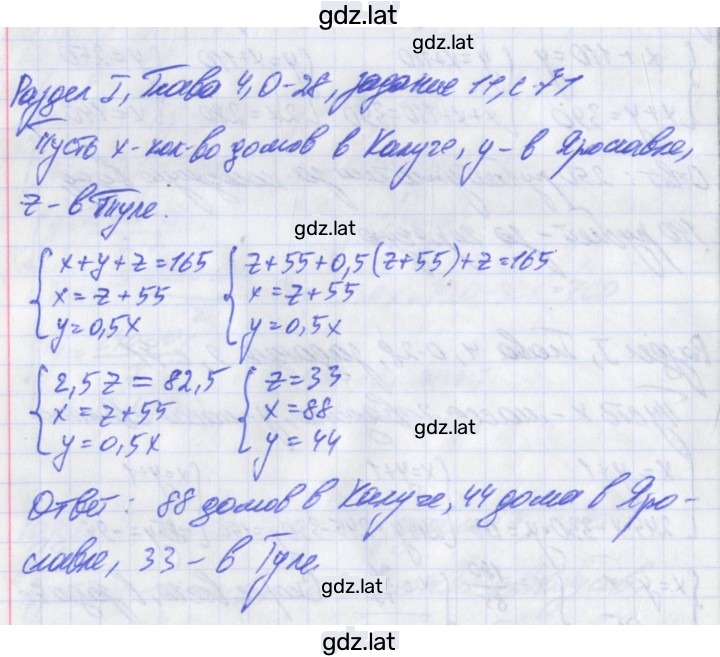 gdz.lat
Раздел I, Глава 4, О-28, задание 11, с. 71
Пусть x - кол-во домов в Калуге, y - в Ярославле,
z - в Туле.
gdz.lat
{ x+y+z=165 { z+55+0,5(z+55)+z=165
{ x=z+55 { x=z+55
{ y=0,5x { y=0,5x
{ 2,5z=82,5 { z=33
{ x=z+55 { x=88
{ y=0,5x { y=44
gdz.lat
Ответ: 88 домов в Калуге, 44 дома в Яро-
славле, 33 - в Туле.
gdz.lat
gdz.lat